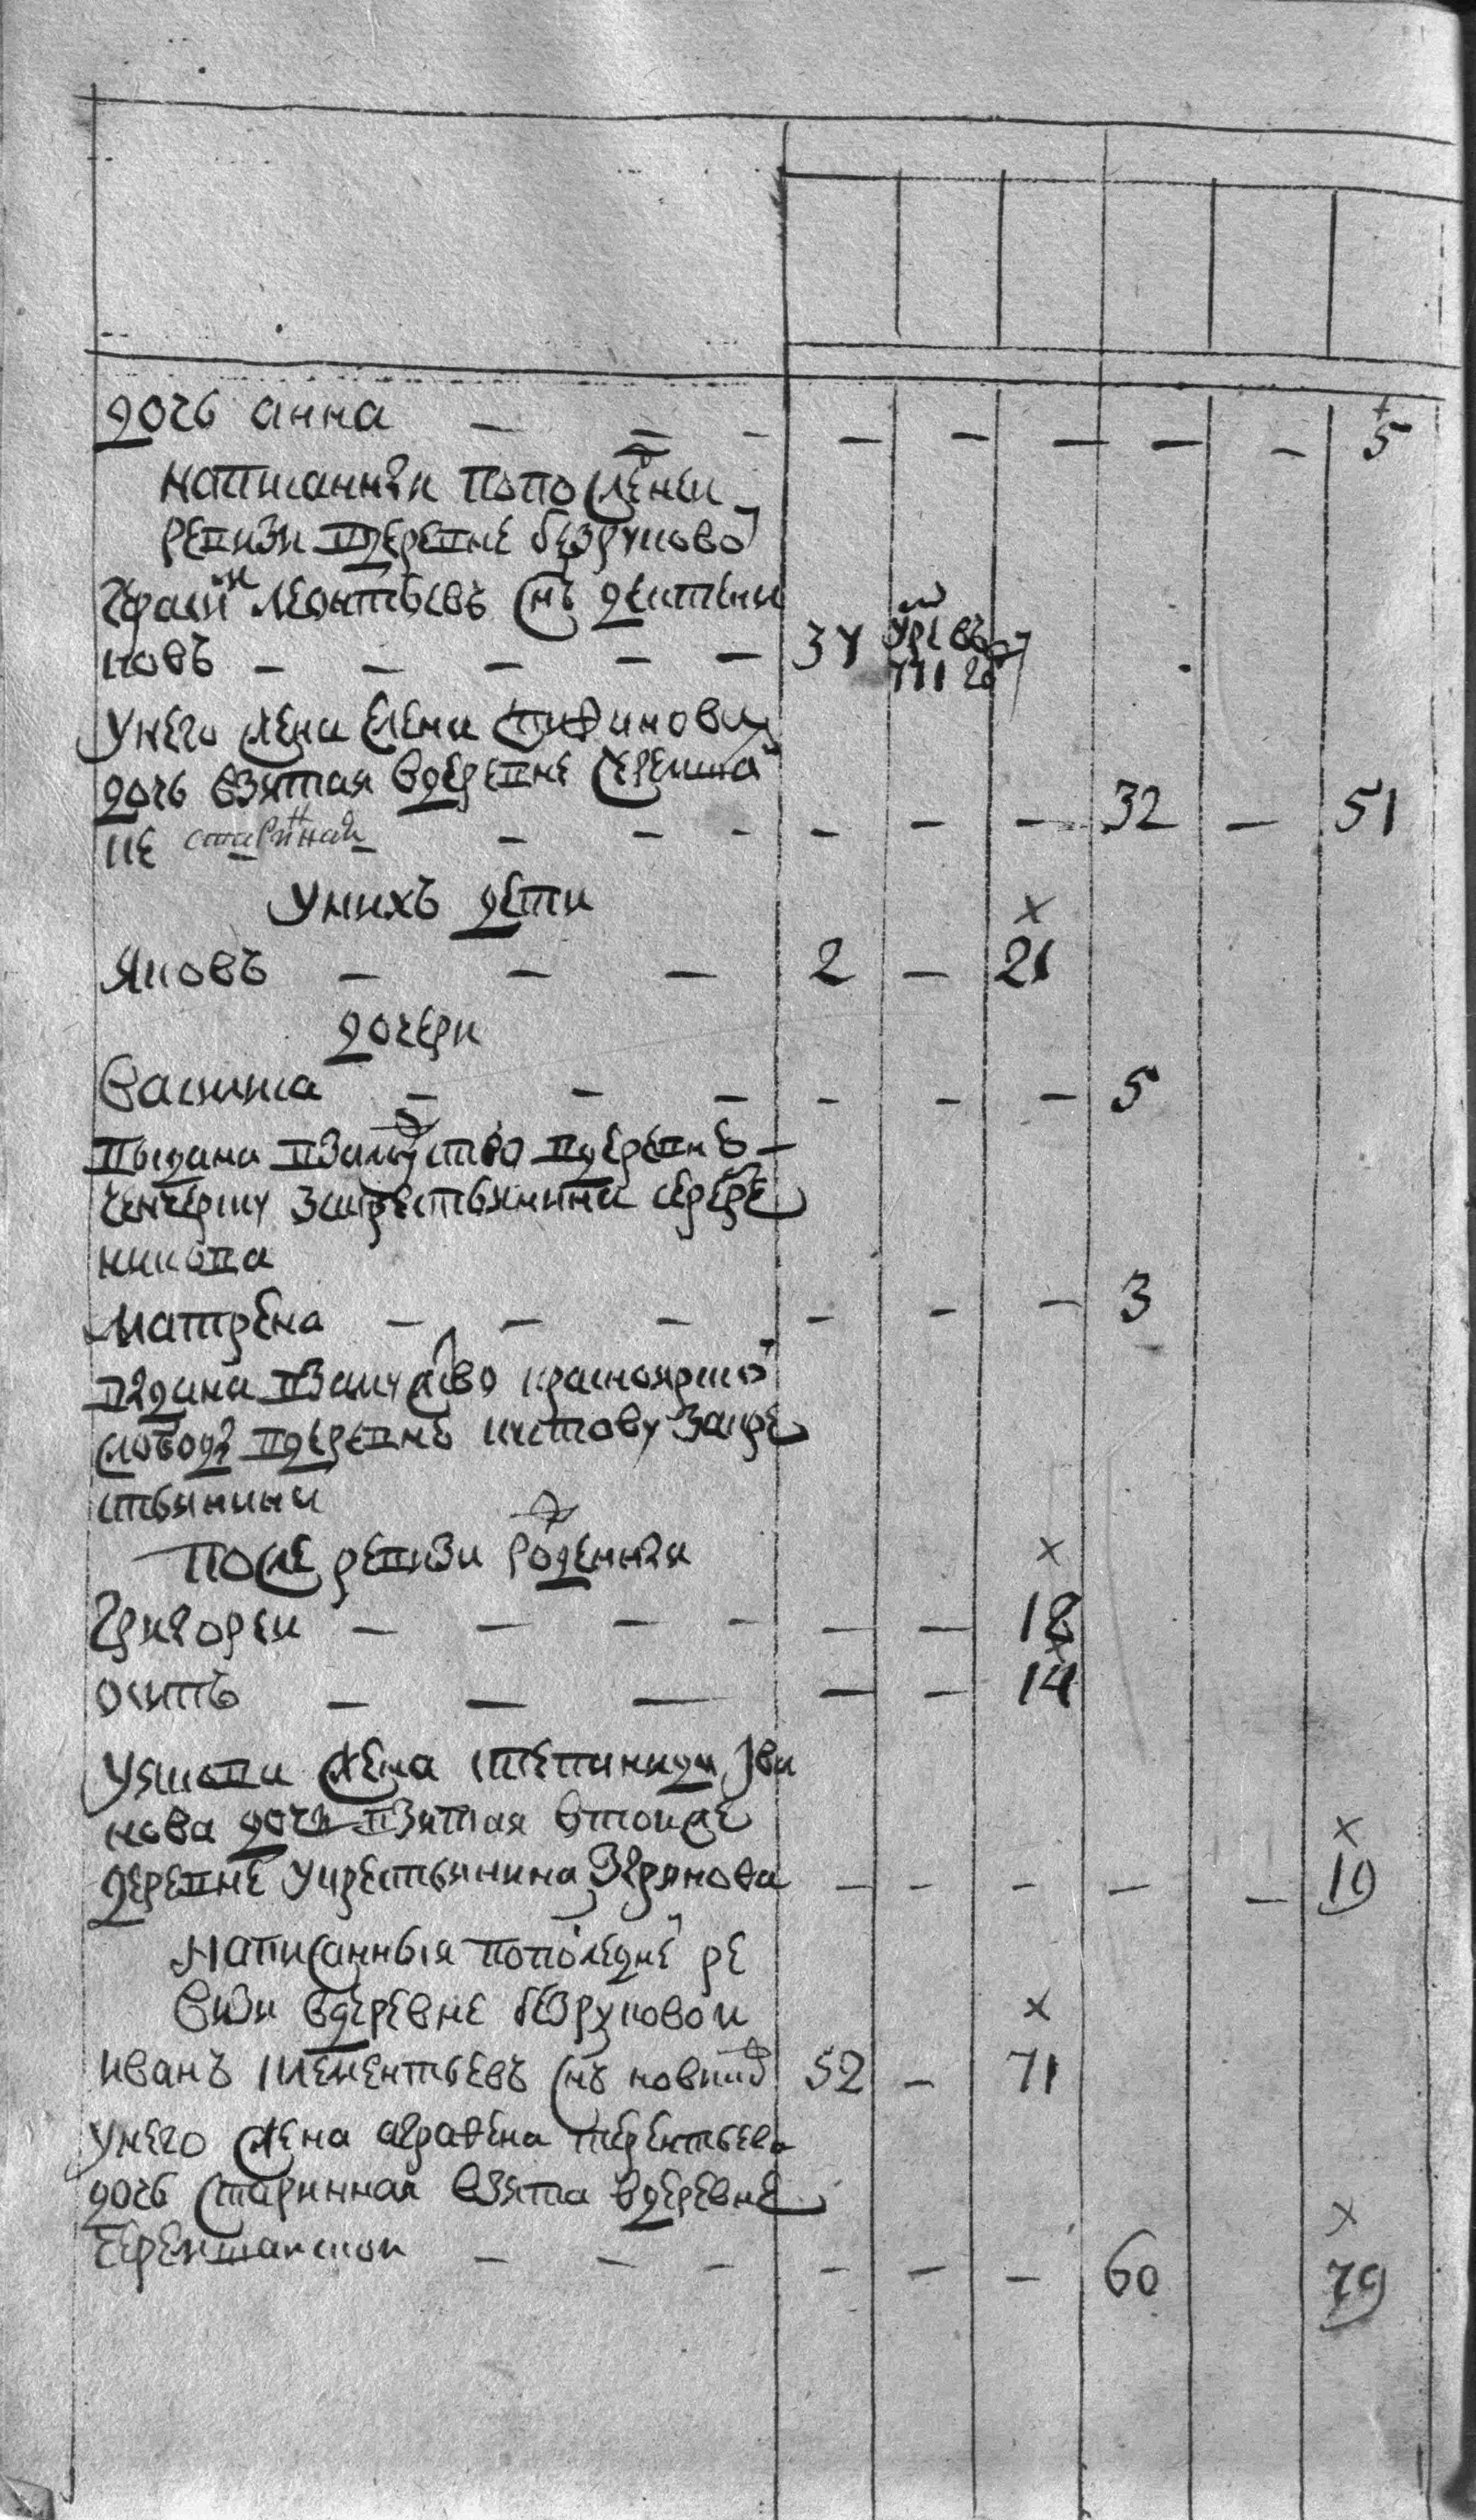 дочь анна — — — — — — — — 5
написанныя попоследнеи
ревизи вдеревне безруковой
леонтьевъ снъ
ковъ — — — — — 34
унего жена елена
дочь взятая вдеревне
ке старинная — — — — — — 32 — 51
Унихъ дети
Яковъ — — — 2 — 21
дочери
Васиlиса — — — — — — 5
выдана взамужство вдеревнь
закрестьянина
никова
матрена — — — — — — 3
выдана взамужство красноярской
слободы вдеревнь кустову закре
стьянина
После ревизи рожденныя
Григореи — — — — — — 18
осипъ — — — — — 14
Уякова жена степанида ива
нова дочь взятая втоиже
деревне укрестьянина Зырянова — — — — — 19
Написанныя попоследнеи ре
визи вдеревне безруковои
иванъ клементьевъ снъ 52 — 71
Унего жена аграфена терентьева
дочь старинная взята вдеревне
— — — — — — 60 79